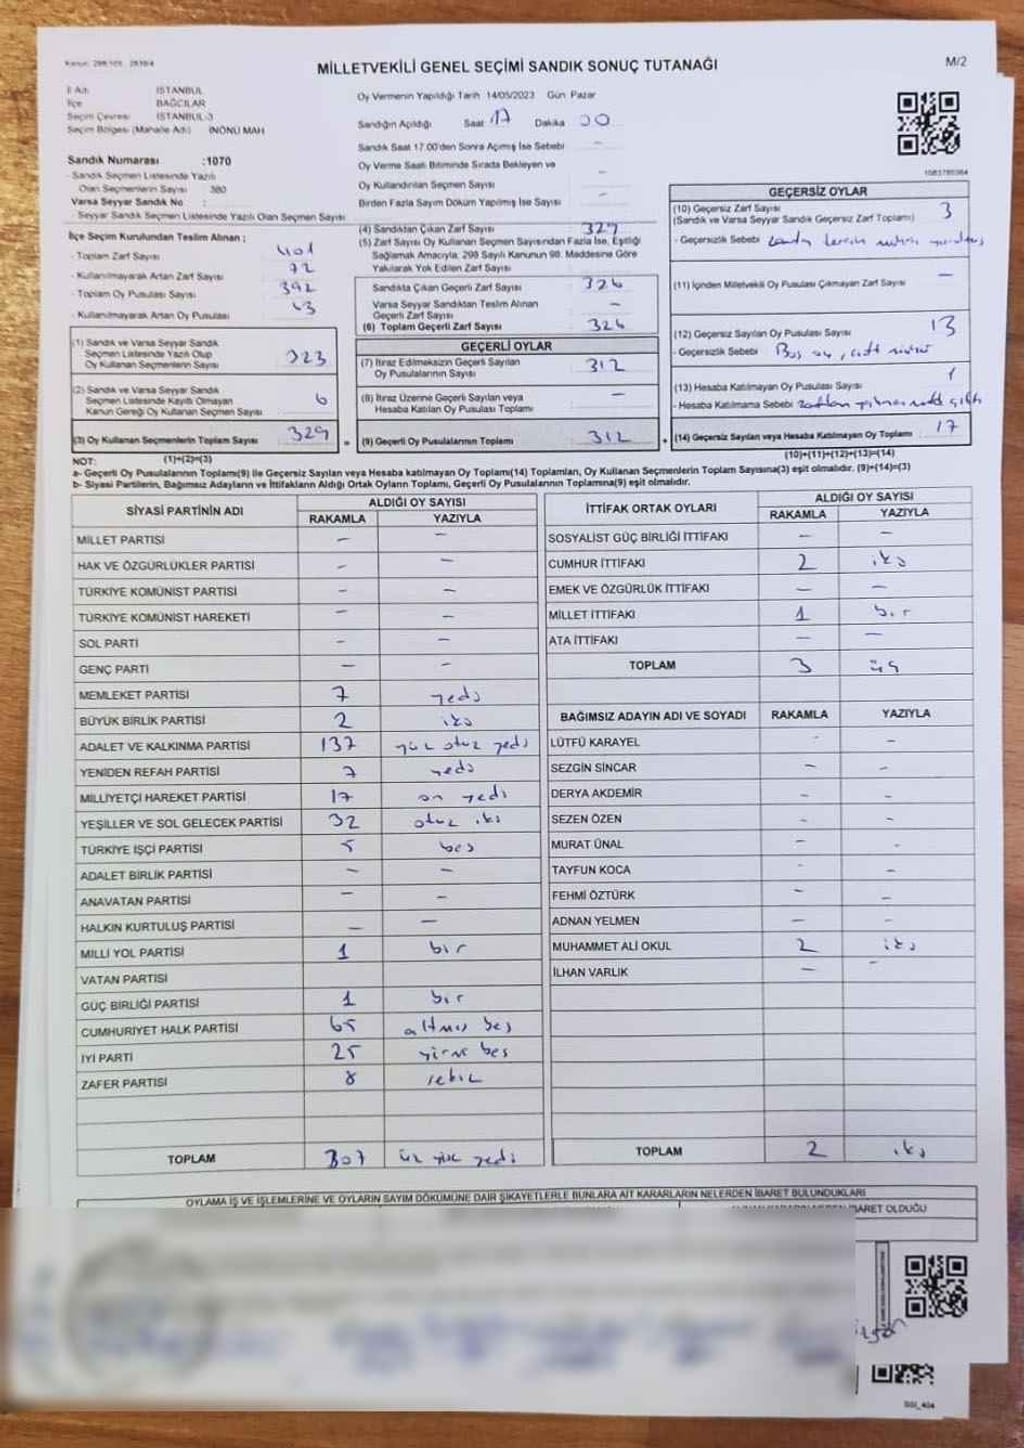 MİLLETVEKİLİ GENEL SEÇİMİ SANDIK SONUÇ TUTANAĞI
M/2
İl Adı İSTANBUL
İlçe BAĞCILAR
Seçim Çevresi İSTANBUL-3
Seçim Bölgesi (Mahalle Adı) İNÖNÜ MAH
Sandık Numarası :1070
- Sandık Seçmen Listesinde Yazılı
Olan Seçmenlerin Sayısı 380
Varsa Seyyar Sandık No :
- Seyyar Sandık Seçmen Listesinde Yazılı Olan Seçmen Sayısı
Oy Vermenin Yapıldığı Tarih 14/05/2023 Gün Pazar
Sandığın Açıldığı Saat 17 Dakika 00
Sandık Saat 17.00'den Sonra Açımış İse Sebebi -
Oy Verme Saati Bitiminde Sırada Bekleyen ve
Oy Kullandırılan Seçmen Sayısı -
Birden Fazla Sayım Döküm Yapılmış İse Sayısı -
İlçe Seçim Kurulundan Teslim Alınan ;
- Toplam Zarf Sayısı 401
- Kullanılmayarak Artan Zarf Sayısı 72
- Toplam Oy Pusulası Sayısı 392
- Kullanılmayarak Artan Oy Pusulası 63
(1) Sandık ve Varsa Seyyar Sandık
Seçmen Listesinde Yazılı Olup
Oy Kullanan Seçmenlerin Sayısı 323
(2) Sandık ve Varsa Seyyar Sandık
Seçmen Listesinde Kayıtlı Olmayan
Kanun Gereği Oy Kullanan Seçmen Sayısı 6
(3) Oy Kullanan Seçmenlerin Toplam Sayısı 329
(4) Sandıktan Çıkan Zarf Sayısı 329
(5) Zarf Sayısı Oy Kullanan Seçmen Sayısından Fazla İse, Eşitliği
Sağlamak Amacıyla, 298 Sayılı Kanunun 98. Maddesine Göre
Yakılarak Yok Edilen Zarf Sayısı
Sandıkta Çıkan Geçerli Zarf Sayısı 326
Varsa Seyyar Sandıktan Teslim Alınan
Geçerli Zarf Sayısı -
(6) Toplam Geçerli Zarf Sayısı 326
GEÇERLİ OYLAR
(7) İtiraz Edilmeksizin Geçerli Sayılan
Oy Pusulalarının Sayısı 312
(8) İtiraz Üzerine Geçerli Sayılan veya
Hesaba Katılan Oy Pusulası Toplamı -
= (9) Geçerli Oy Pusulalarının Toplamı 312
GEÇERSİZ OYLAR
(10) Geçersiz Zarf Sayısı 3
(Sandık ve Varsa Seyyar Sandık Geçersiz Zarf Toplamı)
- Geçersizlik Sebebi
(11) İçinden Milletvekili Oy Pusulası Çıkmayan Zarf Sayısı -
(12) Geçersiz Sayılan Oy Pusulası Sayısı 13
- Geçersizlik Sebebi Boş oy, çift mühür
(13) Hesaba Katılmayan Oy Pusulası Sayısı 1
- Hesaba Katılmama Sebebi
+ (14) Geçersiz Sayılan veya Hesaba Katılmayan Oy Toplamı 17
NOT: (1)+(2)=(3)
(10)+(11)+(12)+(13)=(14)
a- Geçerli Oy Pusulalarının Toplamı(9) ile Geçersiz Sayılan veya Hesaba katılmayan Oy Toplamı(14) Toplamları, Oy Kullanan Seçmenlerin Toplam Sayısına(3) eşit olmalıdır. (9)+(14)=(3)
b- Siyasi Partilerin, Bağımsız Adayların ve İttifakların Aldığı Ortak Oyların Toplamı, Geçerli Oy Pusulalarının Toplamına(9) eşit olmalıdır.
SİYASİ PARTİNİN ADI ALDIĞI OY SAYISI
RAKAMLA YAZIYLA
MİLLET PARTİSİ - -
HAK VE ÖZGÜRLÜKLER PARTİSİ - -
TÜRKİYE KOMÜNİST PARTİSİ - -
TÜRKİYE KOMÜNİST HAREKETİ - -
SOL PARTİ - -
GENÇ PARTİ - -
MEMLEKET PARTİSİ 7 yedi
BÜYÜK BİRLİK PARTİSİ 2 iki
ADALET VE KALKINMA PARTİSİ 137 yüz otuz yedi
YENİDEN REFAH PARTİSİ 7 yedi
MİLLİYETÇİ HAREKET PARTİSİ 17 on yedi
YEŞİLLER VE SOL GELECEK PARTİSİ 32 otuz iki
TÜRKİYE İŞÇİ PARTİSİ 5 beş
ADALET BİRLİK PARTİSİ - -
ANAVATAN PARTİSİ - -
HALKIN KURTULUŞ PARTİSİ - -
MİLLİ YOL PARTİSİ 1 bir
VATAN PARTİSİ
GÜÇ BİRLİĞİ PARTİSİ 1 bir
CUMHURİYET HALK PARTİSİ 65 altmış beş
İYİ PARTİ 25 yirmi beş
ZAFER PARTİSİ 8 sekiz
TOPLAM 307 üç yüz yedi
İTTİFAK ORTAK OYLARI ALDIĞI OY SAYISI
RAKAMLA YAZIYLA
SOSYALİST GÜÇ BİRLİĞİ İTTİFAKI - -
CUMHUR İTTİFAKI 2 iki
EMEK VE ÖZGÜRLÜK İTTİFAKI - -
MİLLET İTTİFAKI 1 bir
ATA İTTİFAKI - -
TOPLAM 3 üç
BAĞIMSIZ ADAYIN ADI VE SOYADI RAKAMLA YAZIYLA
LÜTFÜ KARAYEL - -
SEZGİN SİNCAR - -
DERYA AKDEMİR - -
SEZEN ÖZEN - -
MURAT ÜNAL - -
TAYFUN KOCA - -
FEHMİ ÖZTÜRK - -
ADNAN YELMEN - -
MUHAMMET ALİ OKUL 2 iki
İLHAN VARLIK - -
TOPLAM 2 iki
OYLAMA İŞ VE İŞLEMLERİNE VE OYLARIN SAYIM DÖKÜMÜNE DAİR ŞİKAYETLERLE BUNLARA AİT KARARLARIN NELERDEN İBARET BULUNDUKLARI
İBARET OLDUĞU